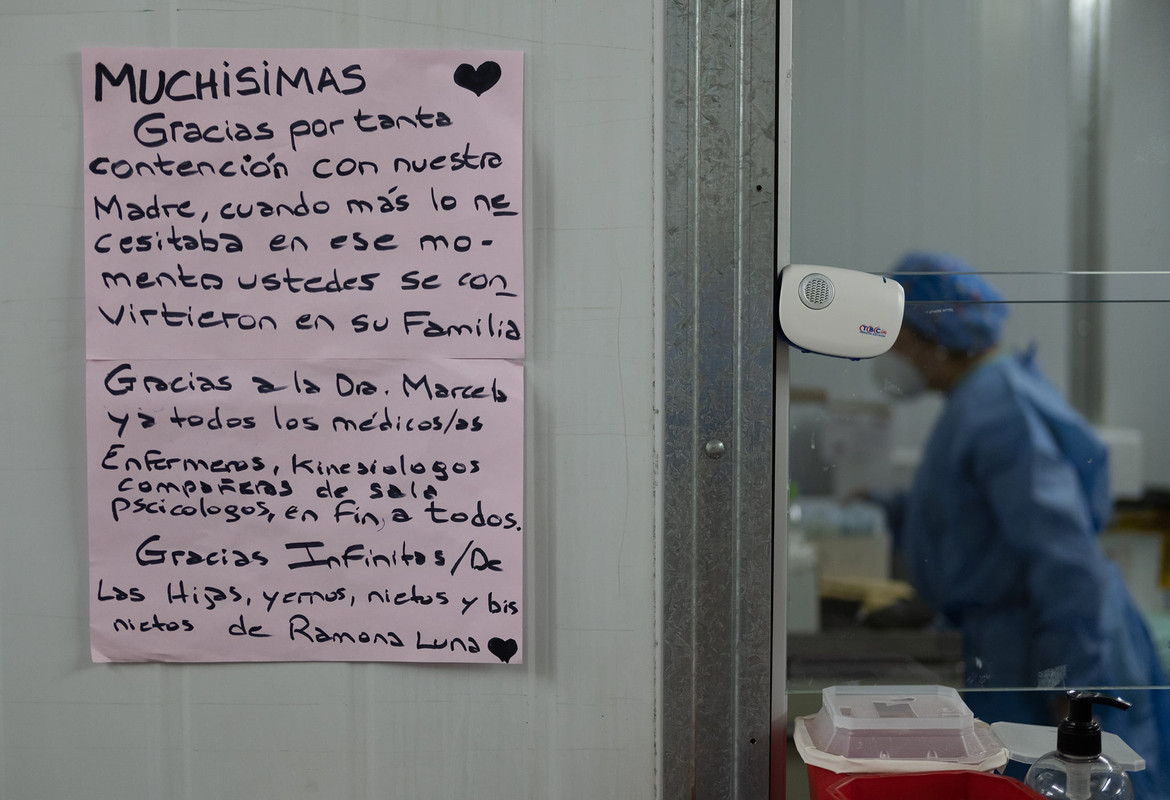 MUCHiSiMAS
Gracias por tanta
contención con nuestra
Madre, cuando más lo ne
cesitaba en ese mo-
mento ustedes se con
virtieron en su Familia
Gracias a la Dra. Marcela
y a todos los médicos/as
Enfermeros, Kinesiologos
compañeras de sala
pscicologos, en fin, a todos.
Gracias Infinitas/De
Las Hijas, yernos, nietos y bis
nietos de Ramona Luna